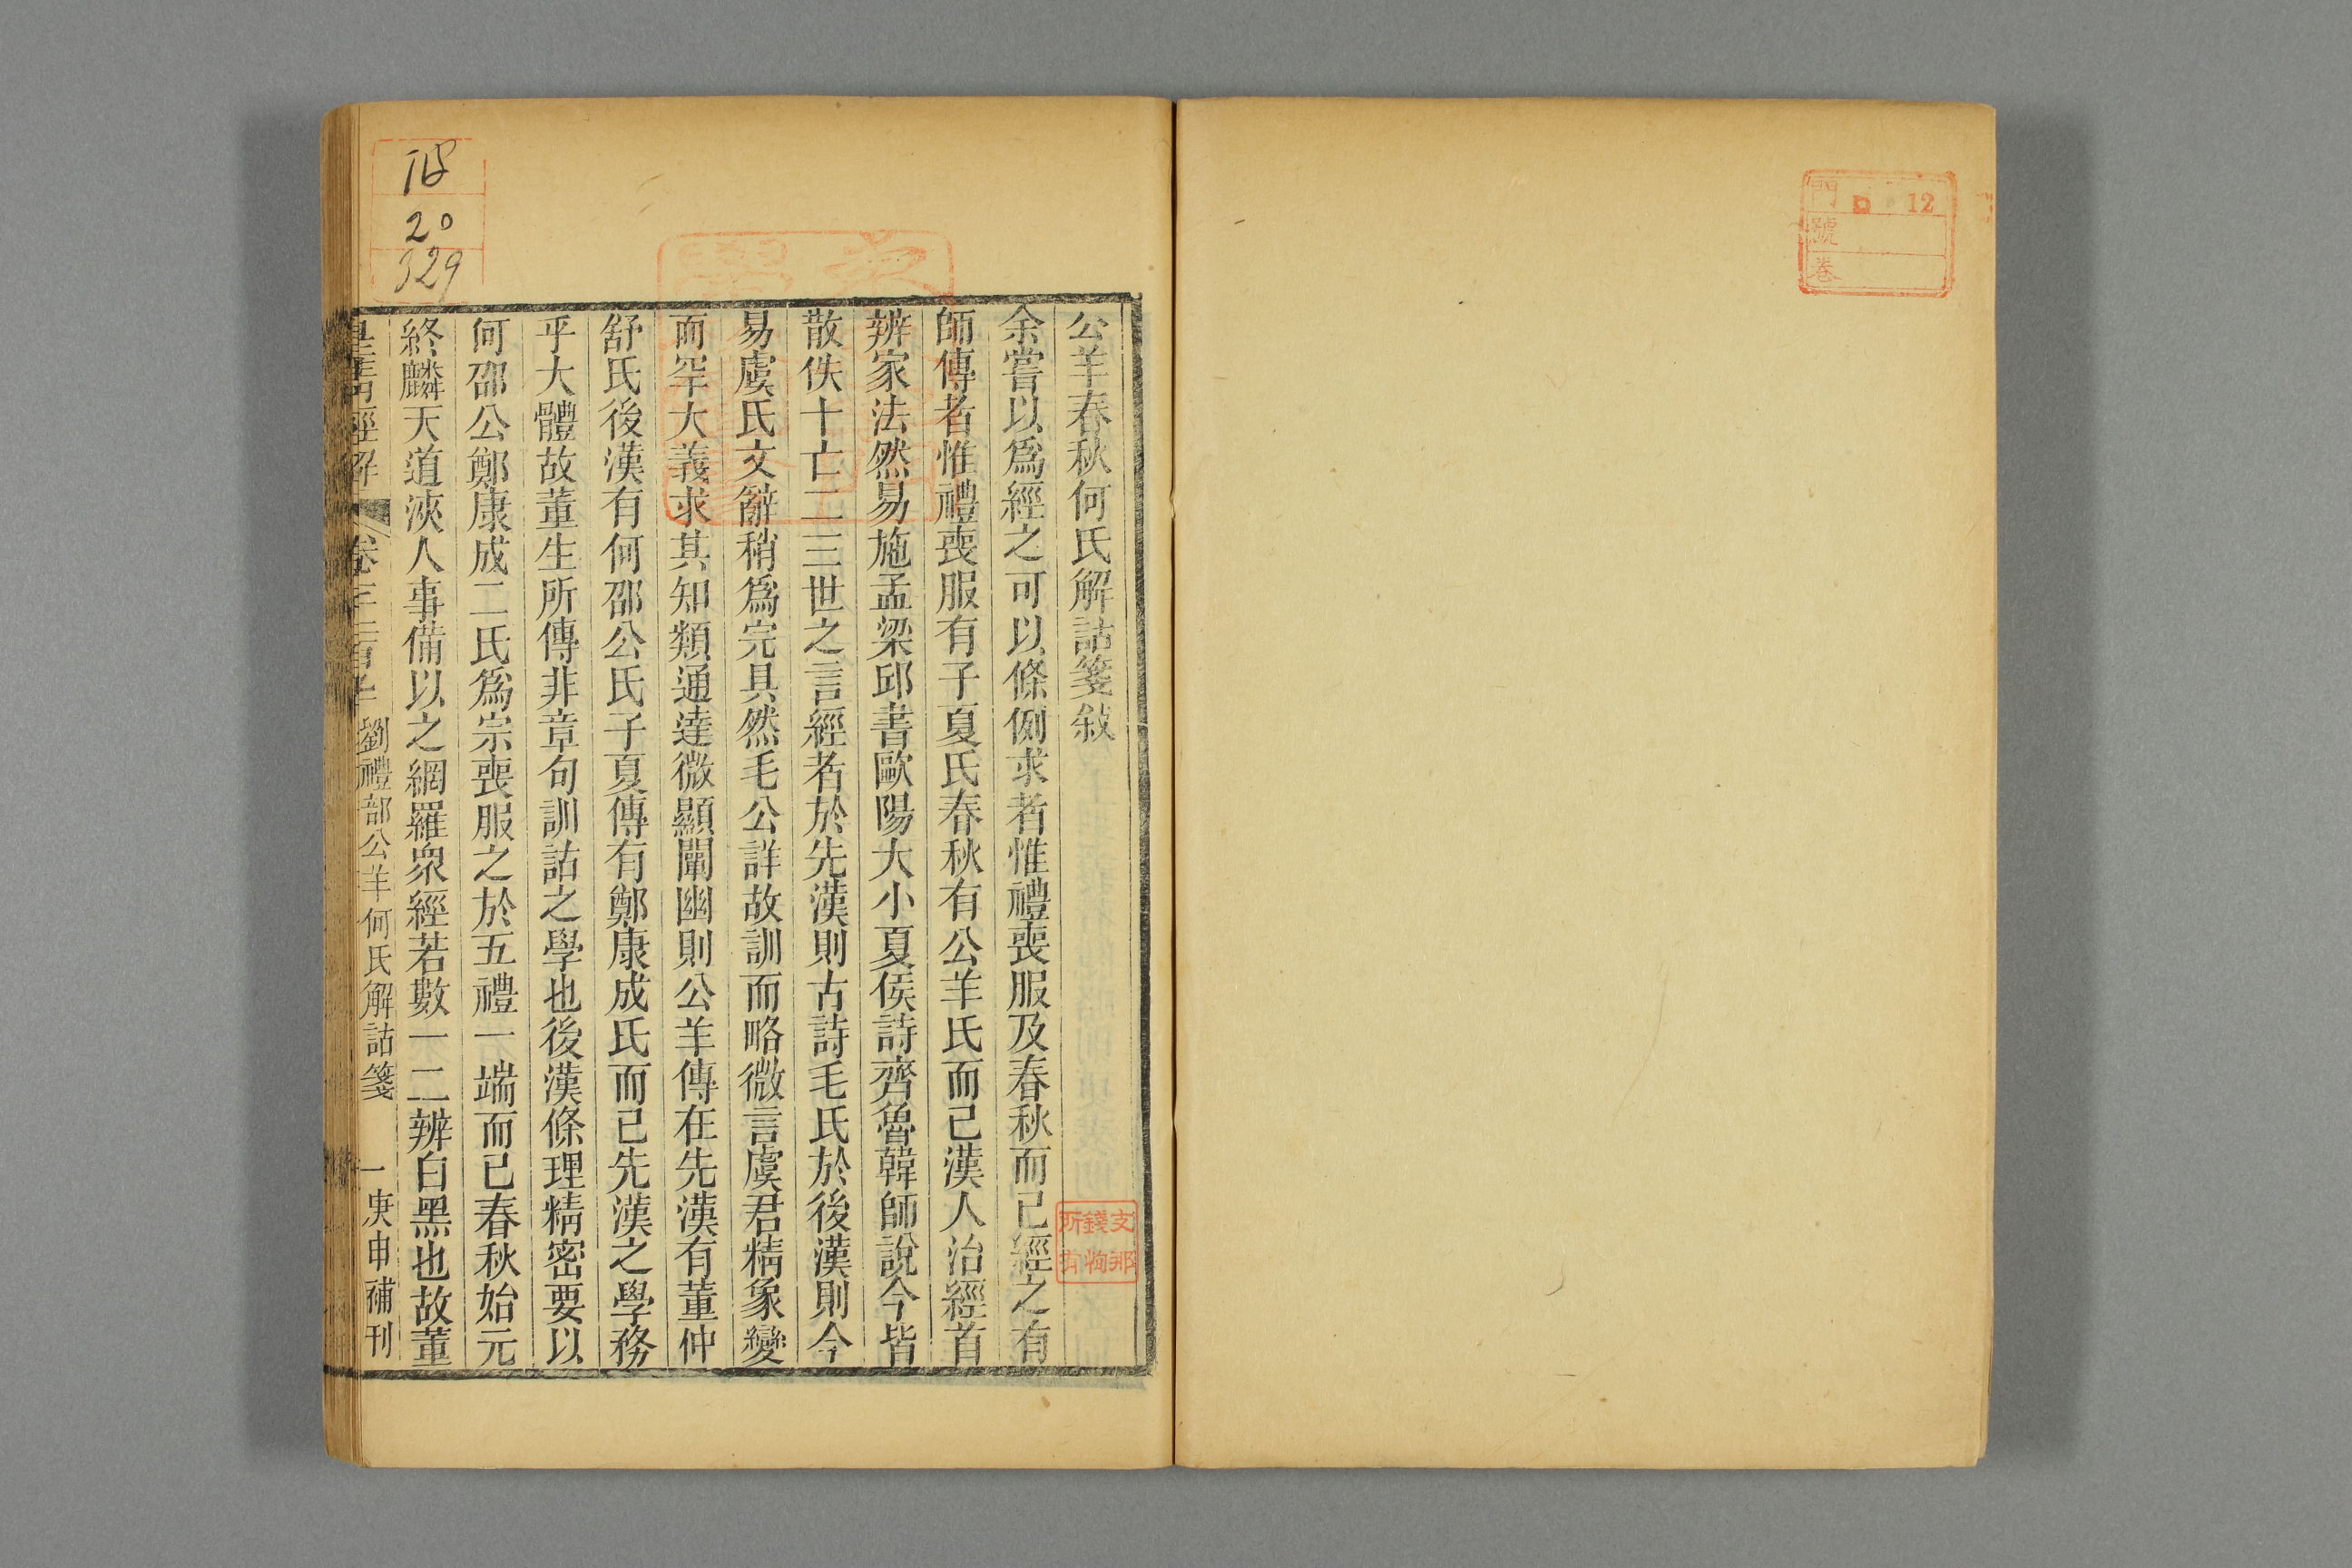 門 12
號
卷
公羊春秋何氏解詁箋敍
余嘗以爲經之可以條例求者惟禮喪服及春秋而已經之有
師傳者惟禮喪服有子夏氏春秋有公羊氏而已漢人治經首
辨家法然易施孟梁邱書歐陽大小夏侯詩齊魯韓師說今皆
散佚十亡二三世之言經者於先漢則古詩毛氏於後漢則今
易虞氏文辭稍爲完具然毛公詳故訓而略微言虞君精象變
而罕大義求其知類通達微顯闡幽則公羊傳在先漢有董仲
舒氏後漢有何邵公氏子夏傳有鄭康成氏而已先漢之學務
乎大體故董生所傳非章句訓詁之學也後漢條理精密要以
何邵公鄭康成二氏爲宗喪服之於五禮一端而已春秋始元
終麟天道浹人事備以之網羅衆經若數一二辨白黑也故董
皇淸經解 卷千二百九十 劉禮部公羊何氏解詁箋 一 庚申補刊
支那
錢恂
所有
20
329